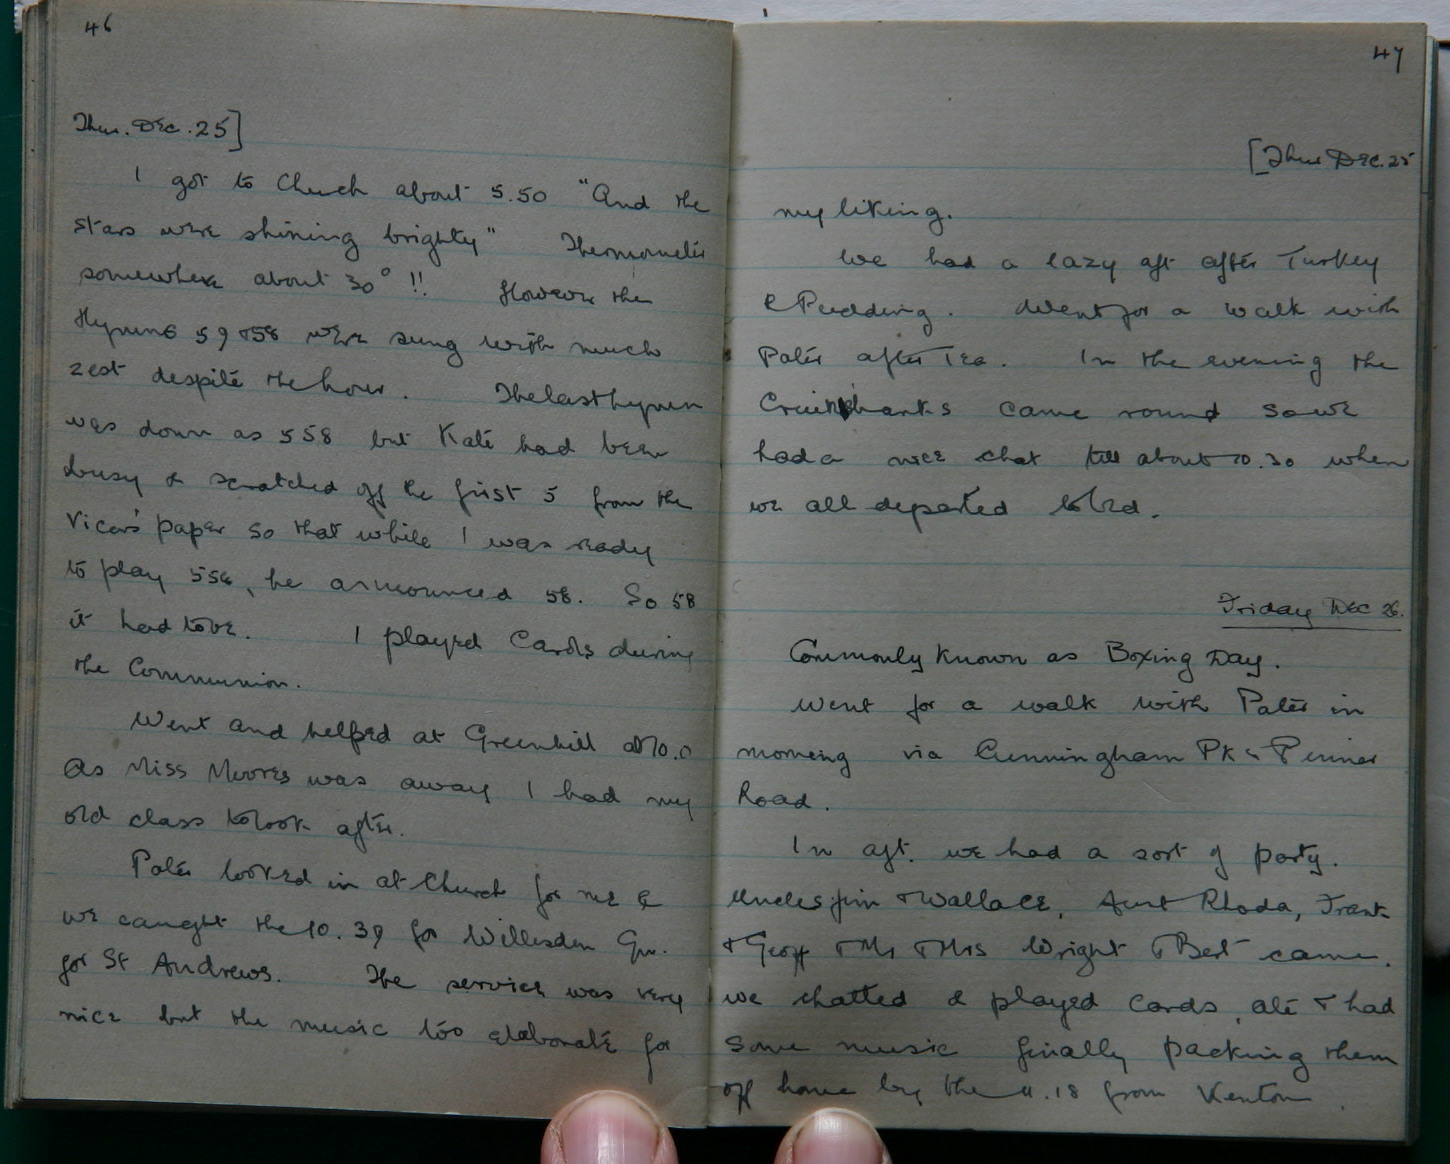 46
Thur. Dec. 25]
I got to Church about 5.50 "And the
stars were shining brighty" Thermometer
somewhere about 30° !! However the
Hymns 59 & 58 were sung with much
zest despite the hour. The last hymn
was down as 558 but Kate had been
busy & scratched off the first 5 from the
Vicar's paper so that while I was ready
to play 558, he announced 58. So 58
it had to be. I played Carols during
the Communion.
Went and helped at Greenhill at 10.0
As Miss Moores was away I had my
old class to look after.
Pater looked in at Church for me &
we caught the 10.39 for Willesden Grn.
for St Andrews. The service was very
nice but the music too elaborate for
47
[Thur Dec. 25
my liking.
We had a lazy aft after Turkey
& Pudding. Went for a walk with
Pater after Tea. In the evening the
Cruikshanks came round so we
had a nice chat till about 10.30 when
we all departed to bed.
Friday Dec 26.
Commonly known as Boxing Day.
Went for a walk with Pater in
morning via Cunningham Pk & Pinner
Road.
In aft. we had a sort of party.
Uncles Jim & Wallace, Aunt Rhoda, Frank
& Geoff & Mr & Mrs Wright & Bert came.
We chatted & played cards, ate & had
some music finally packing them
off home by the 11.18 from Kenton.